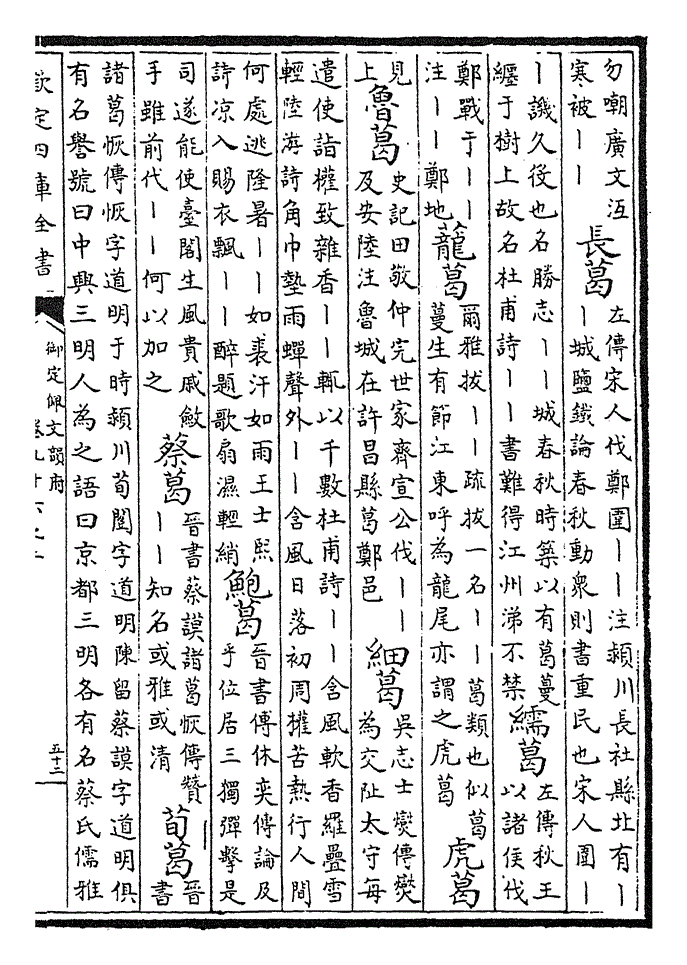 勿嘲廣文沍
寒被丨丨
長葛
左傳宋人伐鄭圍丨丨注潁川長社縣北有丨
丨城鹽鐵論春秋動衆則書重民也宋人圍丨
丨譏久役也名勝志丨丨城春秋時築以有葛蔓
纒于樹上故名杜甫詩丨丨書難得江州涕不禁
繻葛
左傳秋王
以諸侯伐
鄭戰于丨丨
注丨丨鄭地
蘢葛
爾雅拔丨丨疏拔一名丨丨葛類也似葛
蔓生有節江東呼為龍尾亦謂之虎葛
虎葛
見
上
魯葛
史記田敬仲完世家齊宣公伐丨丨
及安陸注魯城在許昌縣葛鄭邑
細葛
吳志士燮傳燮
為交阯太守每
遣使詣權致雜香丨丨輒以千數杜甫詩丨丨含風軟香羅疊雪
輕陸海詩角巾墊雨蟬聲外丨丨含風日落初周權苦熱行人間
何處逃隆暑丨丨如裘汗如雨王士熙
詩凉入賜衣飄丨丨醉題歌扇濕輕綃
鮑葛
晉書傅休奕傳論及
乎位居三獨彈擊是
司遂能使臺閣生風貴戚斂
手雖前代丨丨何以加之
蔡葛
晉書蔡謨諸葛恢傳贊丨
丨丨知名或雅或清
荀葛
晉
書
諸葛恢傳恢字道明于時潁川荀闓字道明陳留蔡謨字道明俱
有名譽號曰中興三明人為之語曰京都三明各有名蔡氏儒雅
欽定四庫全書
御定佩文韻府
卷九十六之
五十二